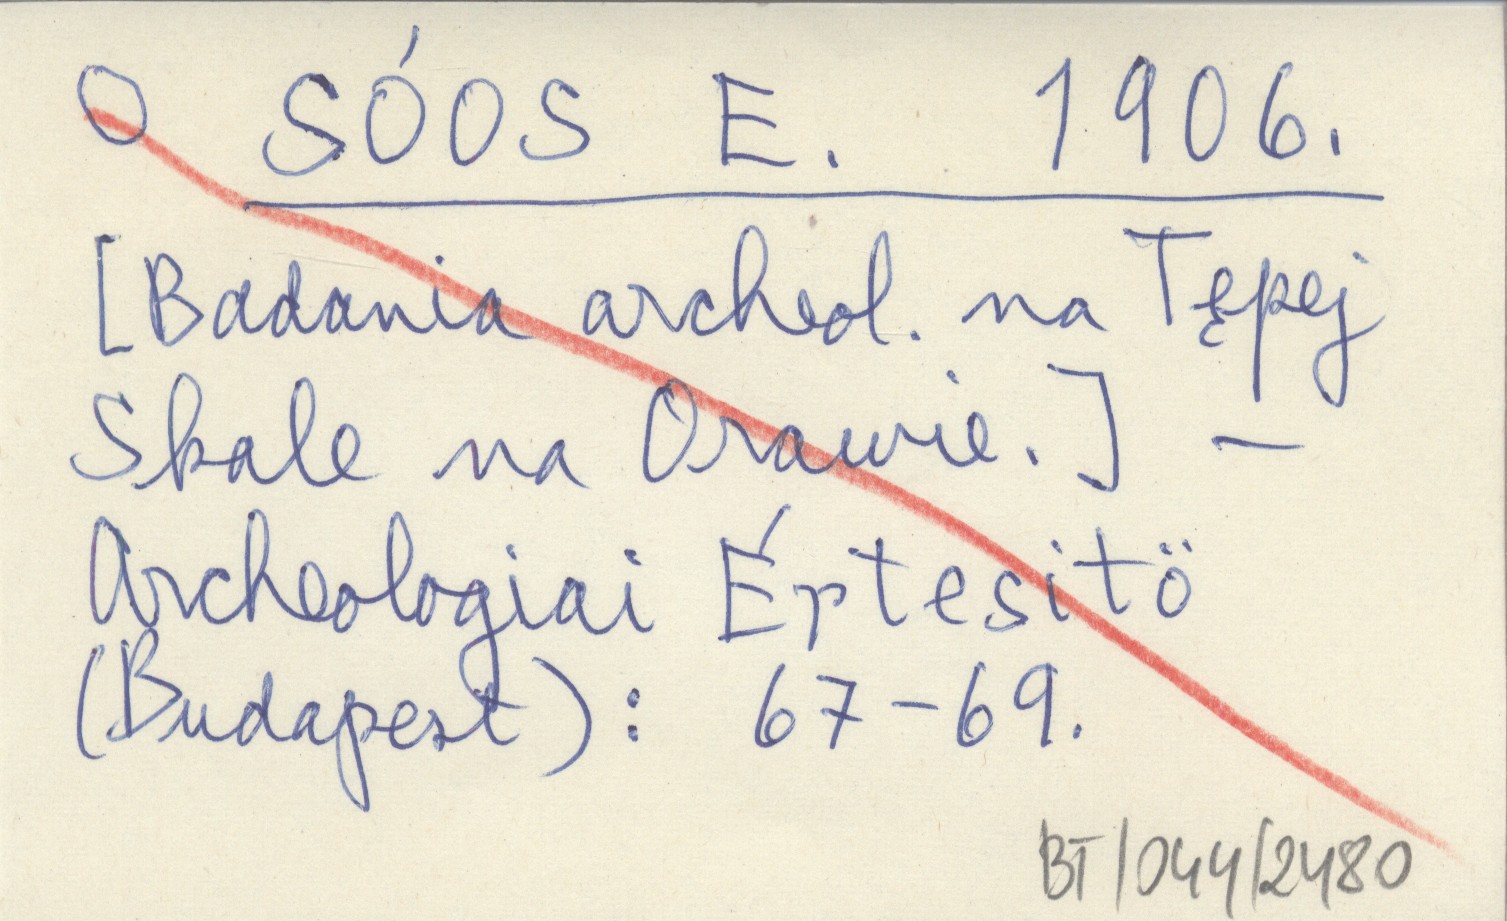 O SÓOS E. 1906.
[Badania archeol. na Tępej
Skale na Orawie.] –
Archeologiai Értesitö
(Budapest): 67-69.
BT/044/2480